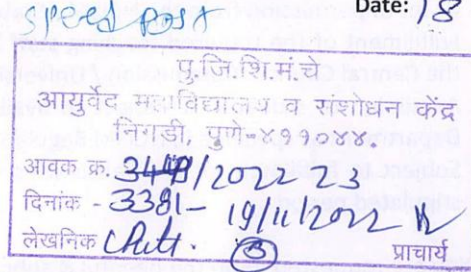 speed Post
Date: 18
पु.जि.शि.मं.चे
आयुर्वेद महाविद्यालय व संशोधन केंद्र
निगडी, पुणे-४११०४४.
आवक क्र. 3449/2022 23
दिनांक - 3381- 19/11/2022
लेखनिक
3
प्राचार्य